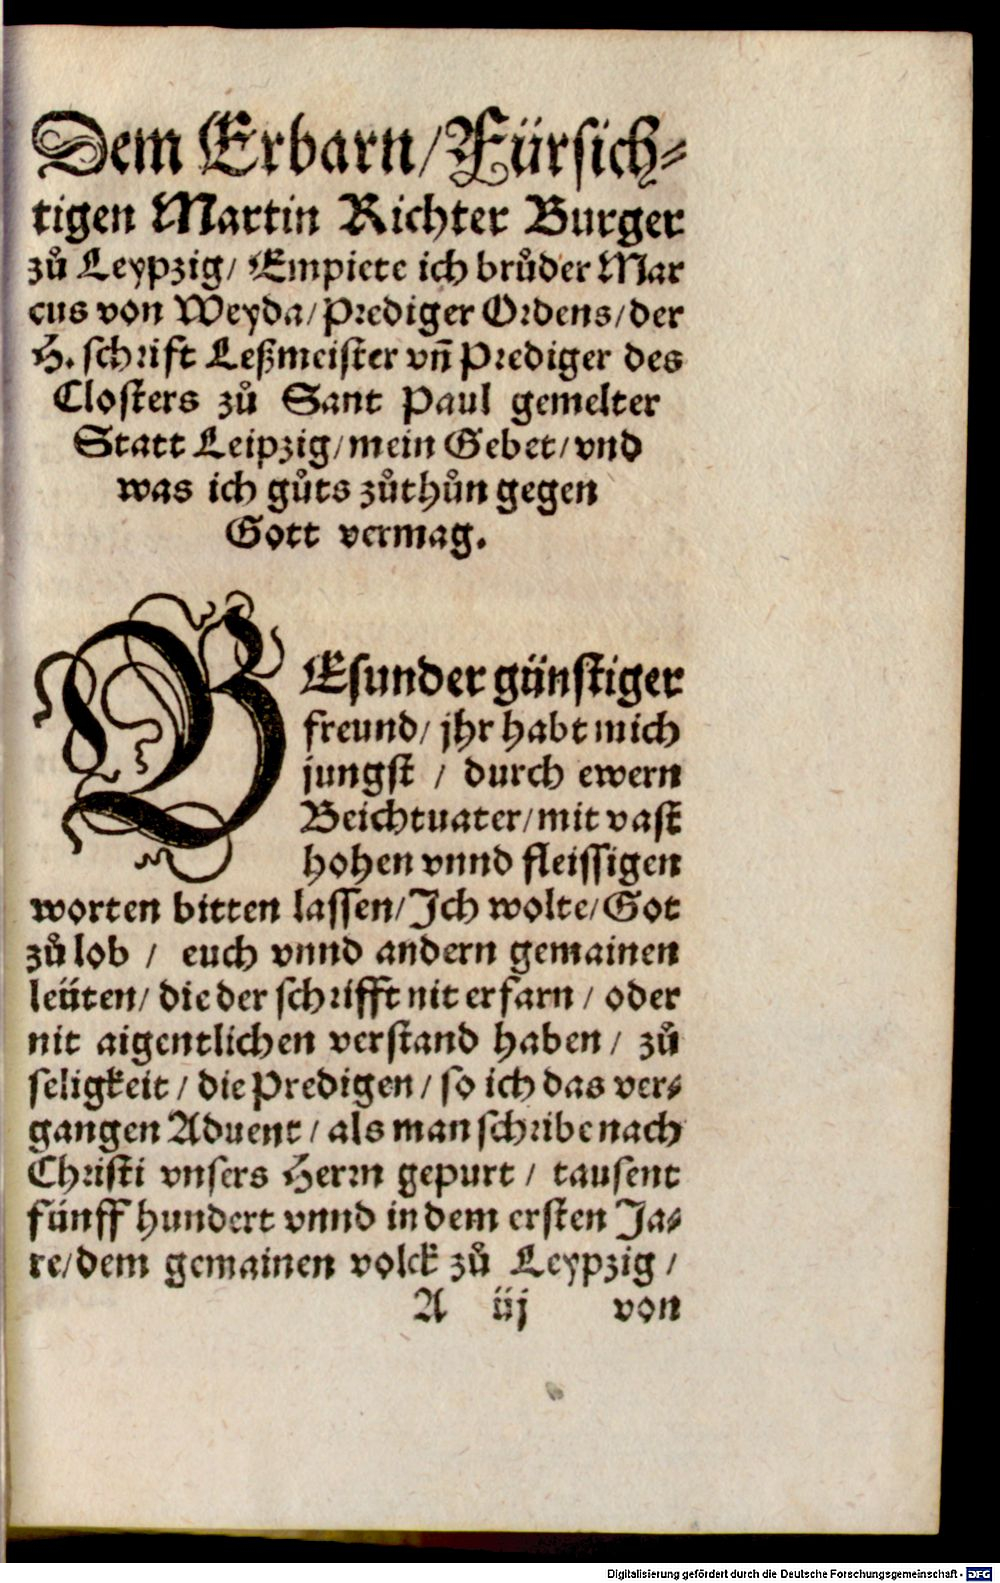 Dem Erbarn/Fürsich-
tigen Martin Richter Burger
zů Leypzig/ Empiete ich brůder Mar
cus von Weyda/Prediger Ordens/der
H. schrift Leßmeister vn̄ Prediger des
Closters zů Sant Paul gemelter
Statt Leipzig/mein Gebet/vnd
was ich gůts zůthůn gegen
Gott vermag.
BEsunder günstiger
freund/ jhr habt mich
jungst / durch ewern
Beichtuater/mit vast
hohen vnnd fleissigen
worten bitten lassen/Ich wolte/Got
zů lob / euch vnnd andern gemainen
leüten/ die der schrifft nit erfarn / oder
nit aigentlichen verstand haben / zů
seligkeit / die Predigen / so ich das ver-
gangen Aduent / als man schribe nach
Christi vnsers Herrn gepurt / tausent
fünff hundert vnnd in dem ersten Ja-
re/dem gemainen volck zů Leypzig /
A iij von
Digitalisierung gefördert durch die Deutsche Forschungsgemeinschaft - DFG